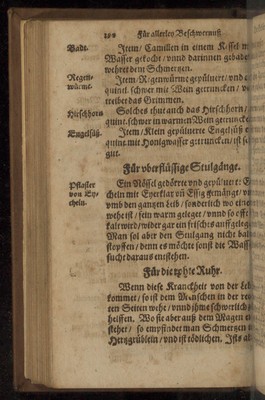 Für allerley Beschwernuß
Badt.
Item / Camillen in einem Kessel m
Wasser gekocht / vnnd darinnen gebade
wehret dem Schmertzen.
Regen-
würme.
Item / Regenwürme gepülvert / vnd
quintl. schwer mit Wein getruncken / v
treibet das Grimmen.
Hirschhorn
Solches thut auch das Hirschhorn /
quint. schwer in warmen Wein getruncke
Engelsüß.
Item / Klein gepülverte Engelsüß e
quint mit Honigwasser getruncken / ist se
gut.
Für vberflüssige Stulgänge.
Pflaster
von Ey-
cheln.
Ein Nössel gedörrte vnd gepülverte E
cheln mit Eyerklar vñ Essig gemänget /
vmb den gantzen Leib / sonderlich wo eine
wehe ist / fein warm geleget / vnnd so offt
kalt wird / wider gar ein frisches auffgeleg
Man sol aber den Stulgang nicht bald
stopffen / denn es möchte sonst die Wasse
sucht daraus entstehen.
Für die rohte Ruhr.
Wenn diese Kranckheit von der Leb
kommet / so ist dem Menschen in der rec
ten Seiten wehe / vnnd ihme schwerlich
helffen. Wo sie aber auß dem Magen en
stehet / so empfindet man Schmertzen
Hertzgrüblein / vnd ist tödlichen. Ists al